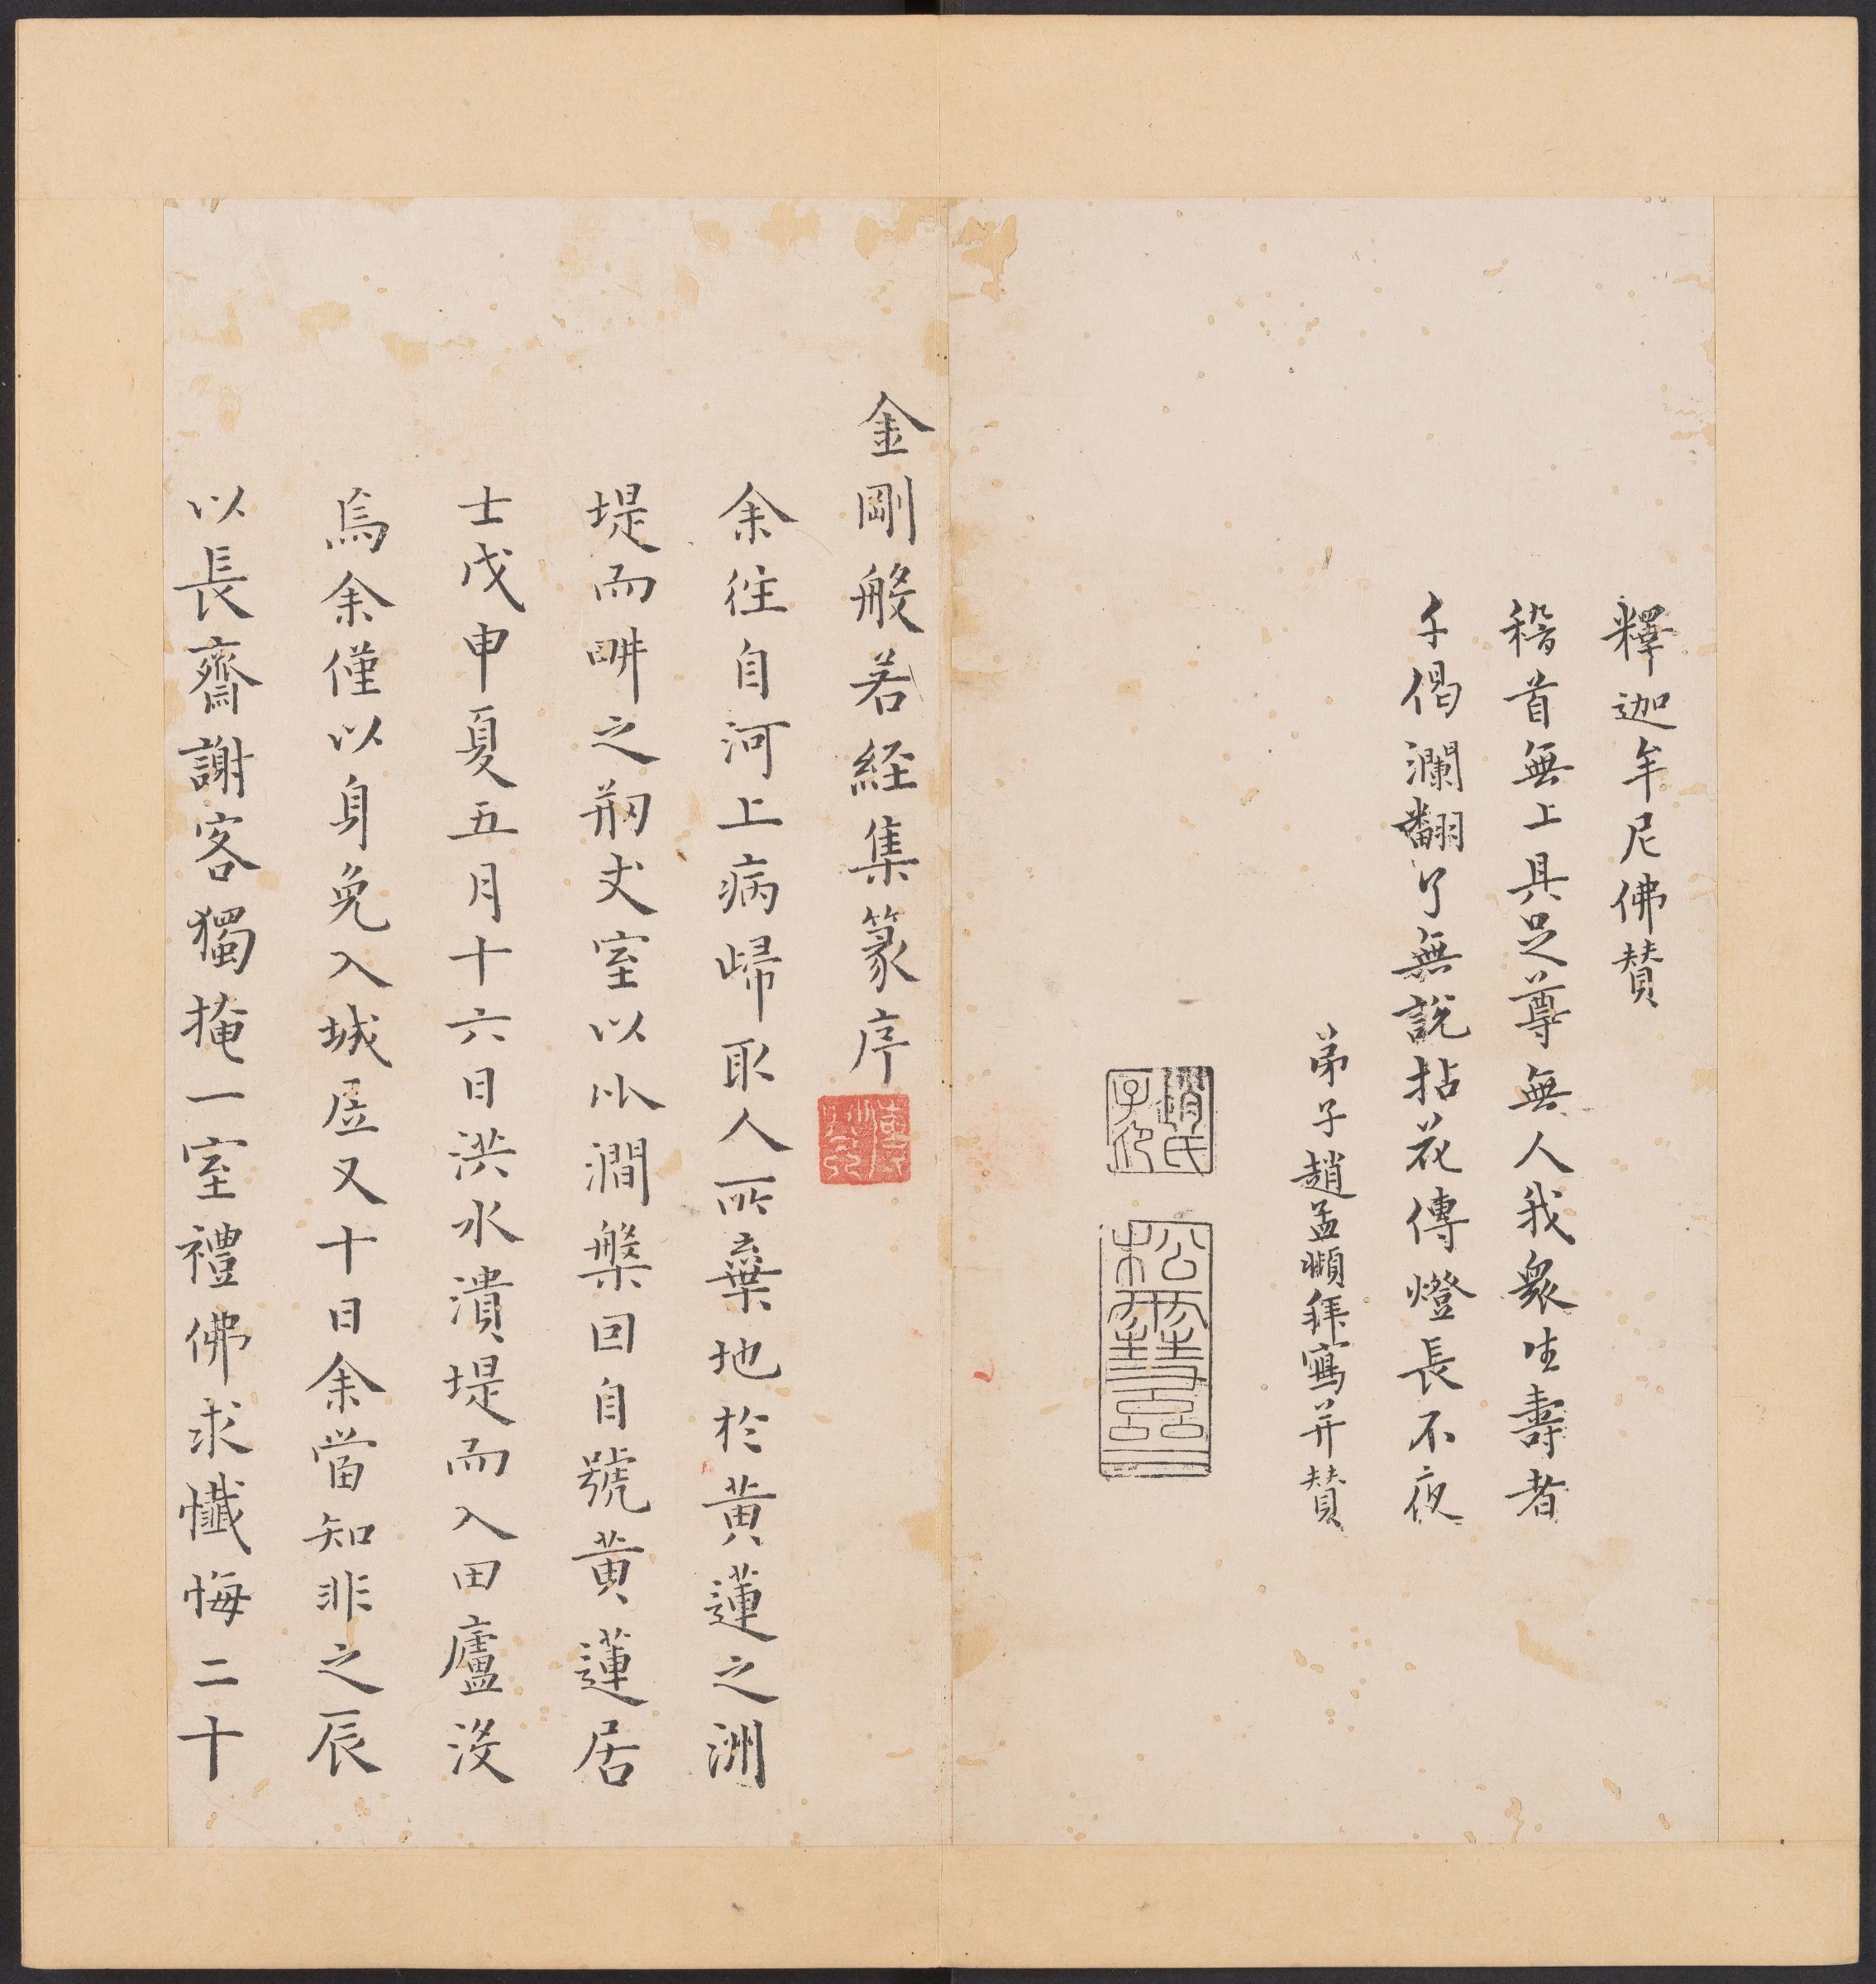 釋迦牟尼佛贊
稽首無上具足尊無人我衆生壽者
千偈瀾翻了無說拈花傳燈長不夜
弟子趙孟頫拜寫并贊
趙氏子印
松雪齋
金剛般若経集篆序
余往自河上病歸取人所棄地於黄蓮之洲
堤而畊之剏丈室以㕥澗槃囙自號黄蓮居
士戊申夏五月十六日洪水潰堤而入田廬没
焉余僅以身免入城凥又十日余當知非之辰
以長齋謝客獨掩一室禮佛求懺悔二十